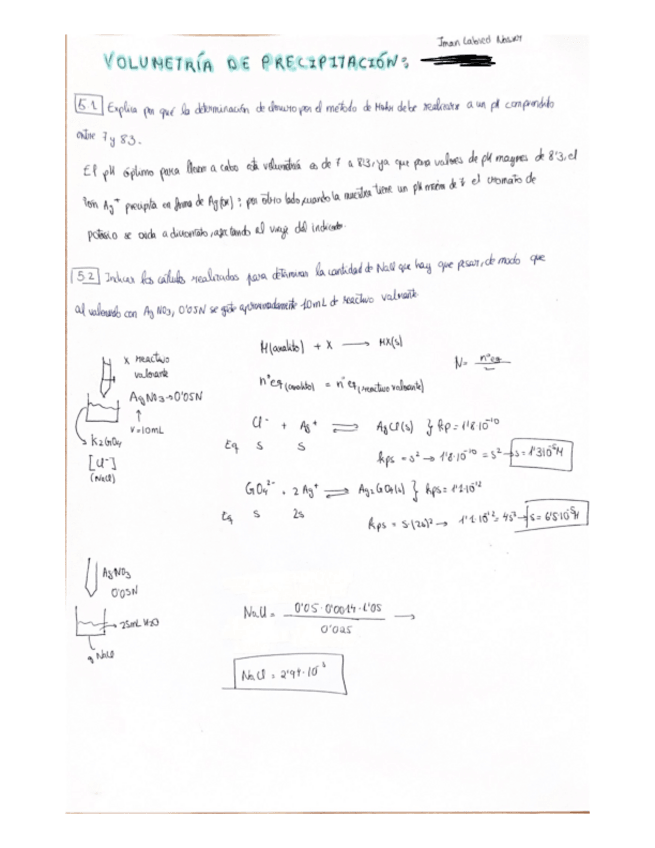 Iman Labied
VOLUMETRÍA DE PRECIPITACIÓN:
5.1 Explica por qué la determinación de cloruro por el método de Mohr debe realizarse a un pH comprendido
entre 7 y 8.3.
El pH óptimo para llevar a cabo esta volumetría es de 7 a 8'3, ya que para valores de pH mayores de 8'3, el
ion Ag+ precipita en forma de Ag(OH); por otro lado, cuando la muestra tiene un pH menor de 7 el cromato de
potasio se oxida a dicromato, afectando al viraje del indicador.
5.2 Incluir los cálculos realizados para determinar la cantidad de NaCl que hay que pesar, de modo que
al valorarlo con AgNO3, 0'05N se gaste aproximadamente 10mL de reactivo valorante
M(analito) + X → MX(s)
N = nºeq
nºeq(analito) = nºeq(reactivo valorante)
X reactivo
valorante
AgNO3→0'05N
↑
V=10mL
K2CrO4
[Cl-]
(NaCl)
Cl- + Ag+ ⇌ AgCl(s) } Kp = 1'8·10-10
Eq s s
Kps = s2 → 1'8·10-10 = s2 → s = 1'3·10-5M
CrO42- + 2Ag+ ⇌ Ag2CrO4(s) } Kps = 1'1·10-12
Eq s 2s
Kps = s·(2s)2 → 1'1·10-12 = 4s3 → s = 6'5·10-5M
AgNO3
0'05N
25mL H2O
g NaCl
NaCl = 0'05·0'0014·1'05 →
0'025
NaCl = 2'94·10